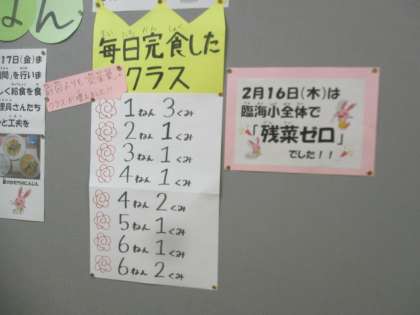 よん
17日(金)ま
間」を行いま
しく給食を食
理員さんたち
と工夫を
まいにちかんしょく
毎日完食した
クラス
1ねん3くみ
2ねん1くみ
3ねん1くみ
4ねん1くみ
4ねん2くみ
5ねん1くみ
6ねん1くみ
6ねん2くみ
2月16日(木)は
臨海小全体で
「残菜ゼロ」
でした!!